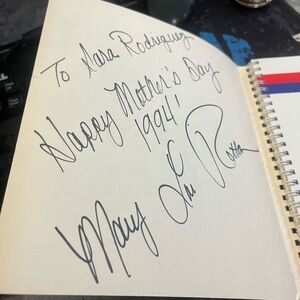 To Sara Rodriguez
Happy Mother's Day
1994!
Mary Lou Retton